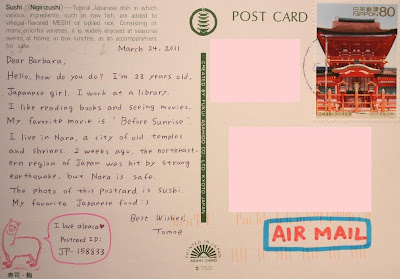 Sushi (Nigirizushi) — Typical Japanese dish in which
various ingredients, such as raw fish, are added to
vinegar flavored MESHI or boiled rice. Consisting of
many colorful varieties, it is widely enjoyed at seasonal
events, at home, in box lunches, as an accompaniment
for sake.
March 24. 2011
Dear Barbara,
Hello, how do you do? I'm 23 years old,
Japanese girl. I work at a library.
I like reading books and seeing movies.
My favorite movie is "Before Sunrise".
I live in Nara, a city of old temples
and shrines. 2 weeks ago, the northeast-
ern region of Japan was hit by strong
earthquake, but Nara is safe.
The photo of this postcard is sushi.
My favorite Japanese food :)
Best Wishes,
Tomoe
I love alpaca♥
Postcard ID:
JP-158833
寿司・鮨
CREATED BY FUKUI ASAHIDO CO., LTD. KYOTO JAPAN
MADE IN JAPAN
ASAHI CARD
¥150
POST CARD
日本郵便 80
NIPPON
AIR MAIL